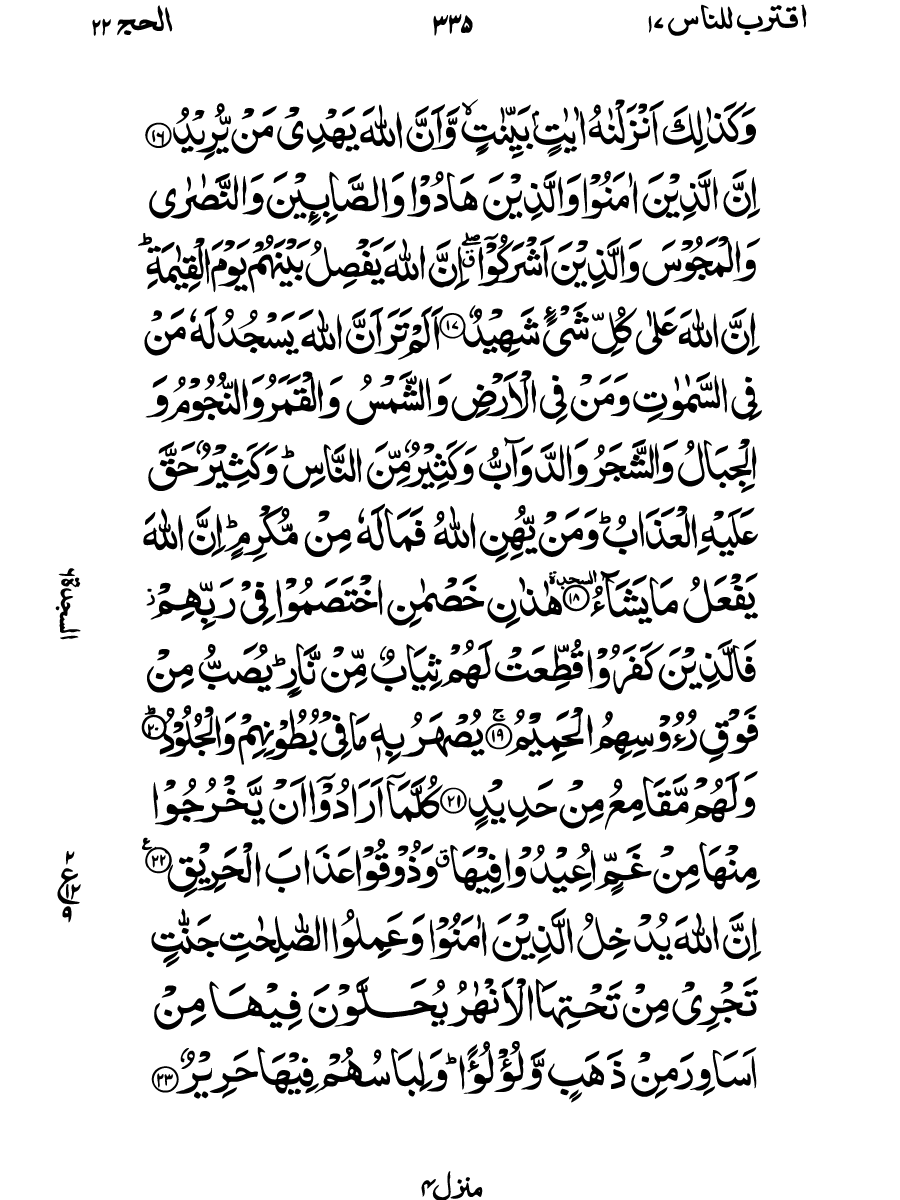 اقترب للناس ١٧ ٣٣٥ الحج ٢٢
وَكَذٰلِكَ اَنْزَلْنٰهُ اٰيٰتٍۢ بَيِّنٰتٍ ۙ وَّاَنَّ اللّٰهَ يَهْدِيْ مَنْ يُّرِيْدُ ﴿١٦﴾
اِنَّ الَّذِيْنَ اٰمَنُوْا وَالَّذِيْنَ هَادُوْا وَالصَّابِـِٕيْنَ وَالنَّصٰرٰى
وَالْمَجُوْسَ وَالَّذِيْنَ اَشْرَكُوْۤا ۖۗ اِنَّ اللّٰهَ يَفْصِلُ بَيْنَهُمْ يَوْمَ الْقِيٰمَةِ ؕ
اِنَّ اللّٰهَ عَلٰى كُلِّ شَيْءٍ شَهِيْدٌ ﴿١٧﴾ اَلَمْ تَرَ اَنَّ اللّٰهَ يَسْجُدُ لَهٗ مَنْ
فِي السَّمٰوٰتِ وَمَنْ فِي الْاَرْضِ وَالشَّمْسُ وَالْقَمَرُ وَالنُّجُوْمُ وَ
الْجِبَالُ وَالشَّجَرُ وَالدَّوَآبُّ وَكَثِيْرٌ مِّنَ النَّاسِ ؕ وَكَثِيْرٌ حَقَّ
عَلَيْهِ الْعَذَابُ ؕ وَمَنْ يُّهِنِ اللّٰهُ فَمَا لَهٗ مِنْ مُّكْرِمٍ ؕ اِنَّ اللّٰهَ
يَفْعَلُ مَا يَشَآءُ ﴿١٨﴾ السجدة هٰذٰنِ خَصْمٰنِ اخْتَصَمُوْا فِيْ رَبِّهِمْ ؗ
السجدة ٦
فَالَّذِيْنَ كَفَرُوْا قُطِّعَتْ لَهُمْ ثِيَابٌ مِّنْ نَّارٍ ؕ يُصَبُّ مِنْ
فَوْقِ رُءُوْسِهِمُ الْحَمِيْمُ ۚ ﴿١٩﴾ يُصْهَرُ بِهٖ مَا فِيْ بُطُوْنِهِمْ وَالْجُلُوْدُ ؕ ﴿٢٠﴾
وَلَهُمْ مَّقَامِعُ مِنْ حَدِيْدٍ ﴿٢١﴾ كُلَّمَاۤ اَرَادُوْۤا اَنْ يَّخْرُجُوْا
مِنْهَا مِنْ غَمٍّ اُعِيْدُوْا فِيْهَا ۗ وَذُوْقُوْا عَذَابَ الْحَرِيْقِ ﴿٢٢﴾ ع
٢ ع ١٢ ٩
اِنَّ اللّٰهَ يُدْخِلُ الَّذِيْنَ اٰمَنُوْا وَعَمِلُوا الصّٰلِحٰتِ جَنّٰتٍ
تَجْرِيْ مِنْ تَحْتِهَا الْاَنْهٰرُ يُحَلَّوْنَ فِيْهَا مِنْ
اَسَاوِرَ مِنْ ذَهَبٍ وَّلُؤْلُؤًا ؕ وَلِبَاسُهُمْ فِيْهَا حَرِيْرٌ ﴿٢٣﴾
منزل ٤